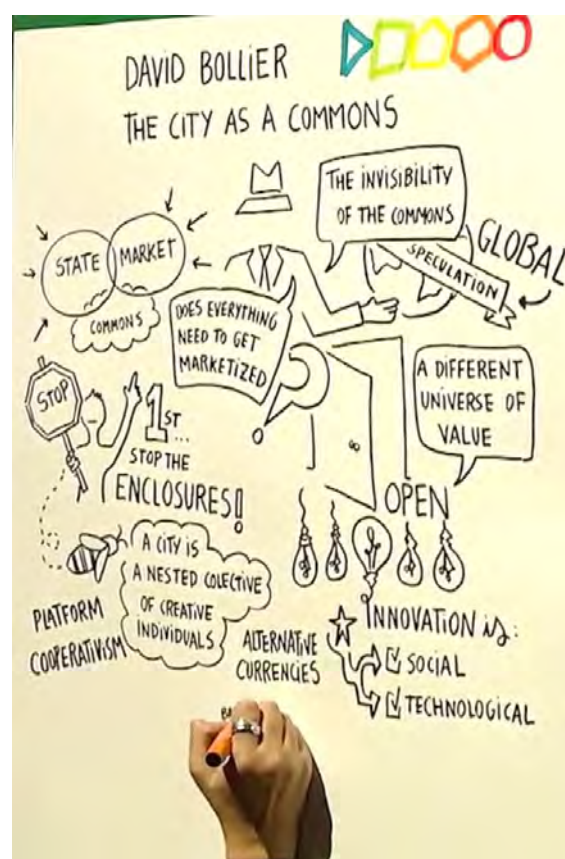 DAVID BOLLIER
THE CITY AS A COMMONS
THE INVISIBILITY
OF THE COMMONS
STATE
MARKET
COMMONS
GLOBAL
SPECULATION
DOES EVERYTHING
NEED TO GET
MARKETIZED
A DIFFERENT
UNIVERSE OF
VALUE
STOP
1ST...
STOP THE
ENCLOSURES!
OPEN
A CITY IS
A NESTED COLECTIVE
OF CREATIVE
INDIVIDUALS
PLATFORM
COOPERATIVISM
ALTERNATIVE
CURRENCIES
INNOVATION is:
SOCIAL
TECHNOLOGICAL